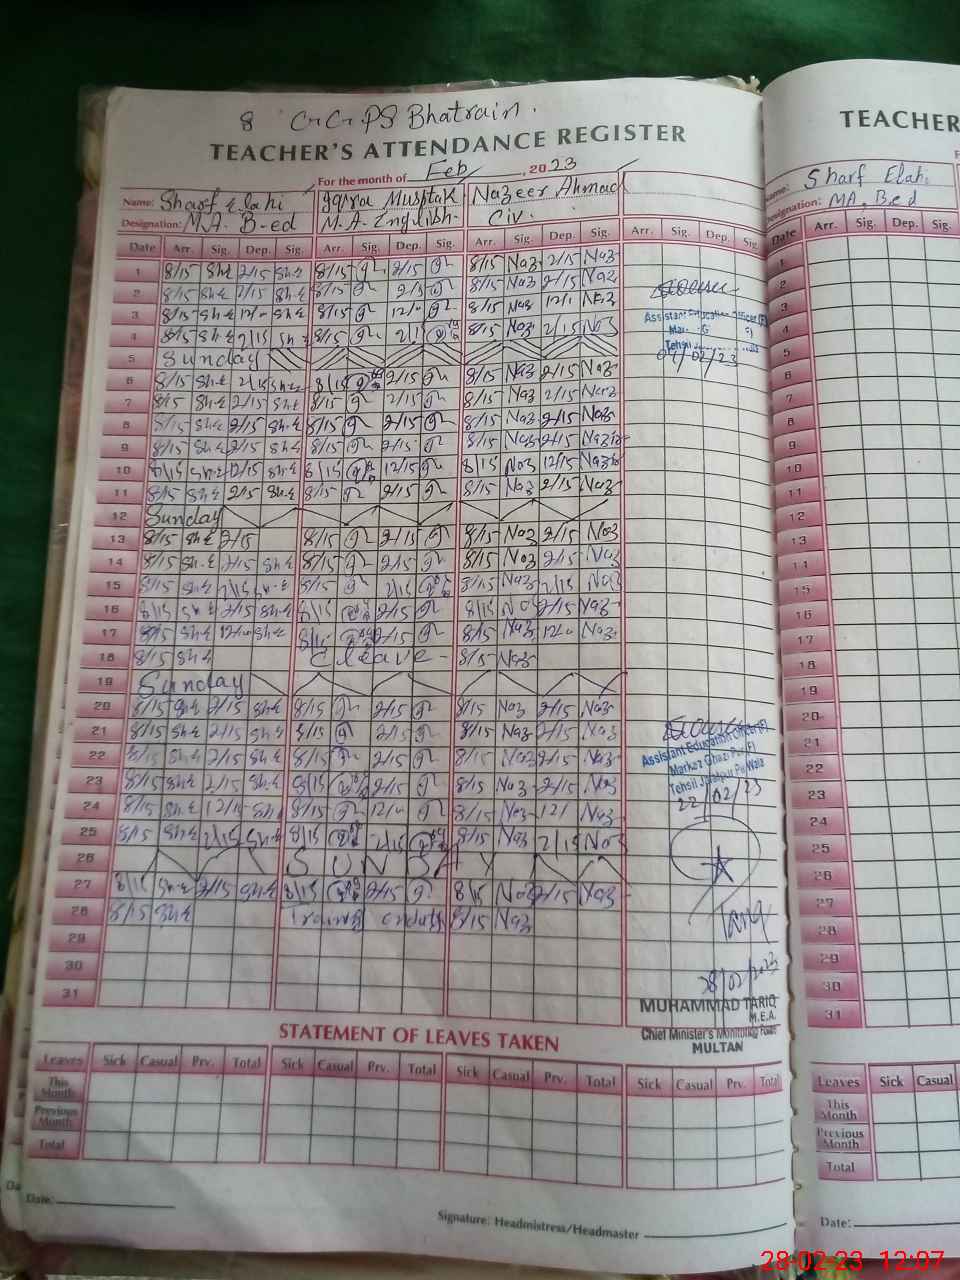 8 G.G.PS Bhatrain.
TEACHER'S ATTENDANCE REGISTER
For the month of Feb, 2023
Name: Sharf Elahi Iqra Mushtak Nazeer Ahmad
Designation: M.A. B-ed M.A. English Civ.
Date Arr. Sig. Dep. Sig. Arr. Sig. Dep. Sig. Arr. Sig. Dep. Sig. Arr. Sig. Dep. Sig.
1 8/15 Sh.E 2/15 Sh.E 8/15 2/15 8/15 Naz 2/15 Naz
2 8/15 Sh.E 2/15 Sh.E 8/15 2/15 8/15 Naz 2/15 Naz
3 8/15 Sh.E 12/ Sh.E 8/15 12/ 8/15 Naz 12/ Naz
4 8/15 Sh.E 2/15 Sh.E 8/15 2/15 8/15 Naz 2/15 Naz
Assistant Education Officer (F)
Tehsil
04/02/23
5 Sunday
6 8/15 Sh.E 2/15 Sh.E 8/15 2/15 8/15 Naz 2/15 Naz
7 8/15 Sh.E 2/15 Sh.E 8/15 2/15 8/15 Naz 2/15 Naz
8 8/15 Sh.E 2/15 Sh.E 8/15 2/15 8/15 Naz 2/15 Naz
9 8/15 Sh.E 2/15 Sh.E 8/15 2/15 8/15 Naz 2/15 Naz
10 8/15 Sh.E 12/15 Sh.E 8/15 12/15 8/15 Naz 12/15 Naz
11 8/15 Sh.E 2/15 Sh.E 8/15 2/15 8/15 Naz 2/15 Naz
12 Sunday
13 8/15 Sh.E 2/15 8/15 2/15 8/15 Naz 2/15 Naz
14 8/15 Sh.E 2/15 Sh.E 8/15 2/15 8/15 Naz 2/15 Naz
15 8/15 Sh.E 2/15 Sh.E 8/15 2/15 8/15 Naz 2/15 Naz
16 8/15 Sh.E 2/15 Sh.E 8/15 2/15 8/15 Naz 2/15 Naz
17 8/15 Sh.E 12/ Sh.E 8/15 2/15 8/15 Naz 12/ Naz
18 8/15 Sh.E C leave - 8/15 Naz
19 Sunday
20 8/15 Sh.E 2/15 Sh.E 8/15 2/15 8/15 Naz 2/15 Naz
21 8/15 Sh.E 2/15 Sh.E 8/15 2/15 8/15 Naz 2/15 Naz
22 8/15 Sh.E 2/15 Sh.E 8/15 2/15 8/15 Naz 2/15 Naz
23 8/15 Sh.E 2/15 Sh.E 8/15 2/15 8/15 Naz 2/15 Naz
24 8/15 Sh.E 12/15 Sh.E 8/15 12/ 8/15 Naz 12/ Naz
25 8/15 Sh.E 2/15 Sh.E 8/15 2/15 8/15 Naz 2/15 Naz
Assistant Education Officer (F)
Markaz Ghazi Pur
Tehsil Jalalpur Pir Wala
22/02/23
26 SUNDAY
27 8/15 Sh.E 2/15 Sh.E 8/15 2/15 8/15 Naz 2/15 Naz
28 8/15 Sh.E Training 8/15 Naz
29
30
31
Tariq
28/02/2023
MUHAMMAD TARIQ
M.E.A.
Chief Minister's Monitoring Force
MULTAN
STATEMENT OF LEAVES TAKEN
Leaves Sick Casual Prv. Total Sick Casual Prv. Total Sick Casual Prv. Total Sick Casual Prv. Total
This Month
Previous Month
Total
Date:
Signature: Headmistress/Headmaster
TEACHER
Name: Sharf Elahi
Designation: MA, B.ed
Date Arr. Sig. Dep. Sig.
1
2
3
4
5
6
7
8
9
10
11
12
13
14
15
16
17
18
19
20
21
22
23
24
25
26
27
28
29
30
31
Leaves Sick Casual
This Month
Previous Month
Total
Date:
28-02-23 12:07